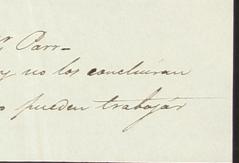 r Parr_
y no los concluiran
o pueden trabajar